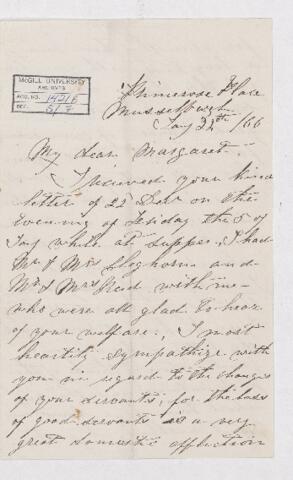 McGILL UNIVERSITY
ARCHIVES
ACC. NO. 1421 E
REF. 5/7
Primrose Place
Musselburgh
Jany 22nd /66
My dear Margaret
I received your kind
letter of 22 Decr on the
evening of Friday the 5 of
Jany while at supper, I had
Mr & Mrs Cleghorn and
Mr & Mrs Reid with me
who were all glad to hear
of your welfare, I most
heartily sympathize with
you in regard to the changes
of your servants, for the loss
of good servants is a very
great domestic affliction